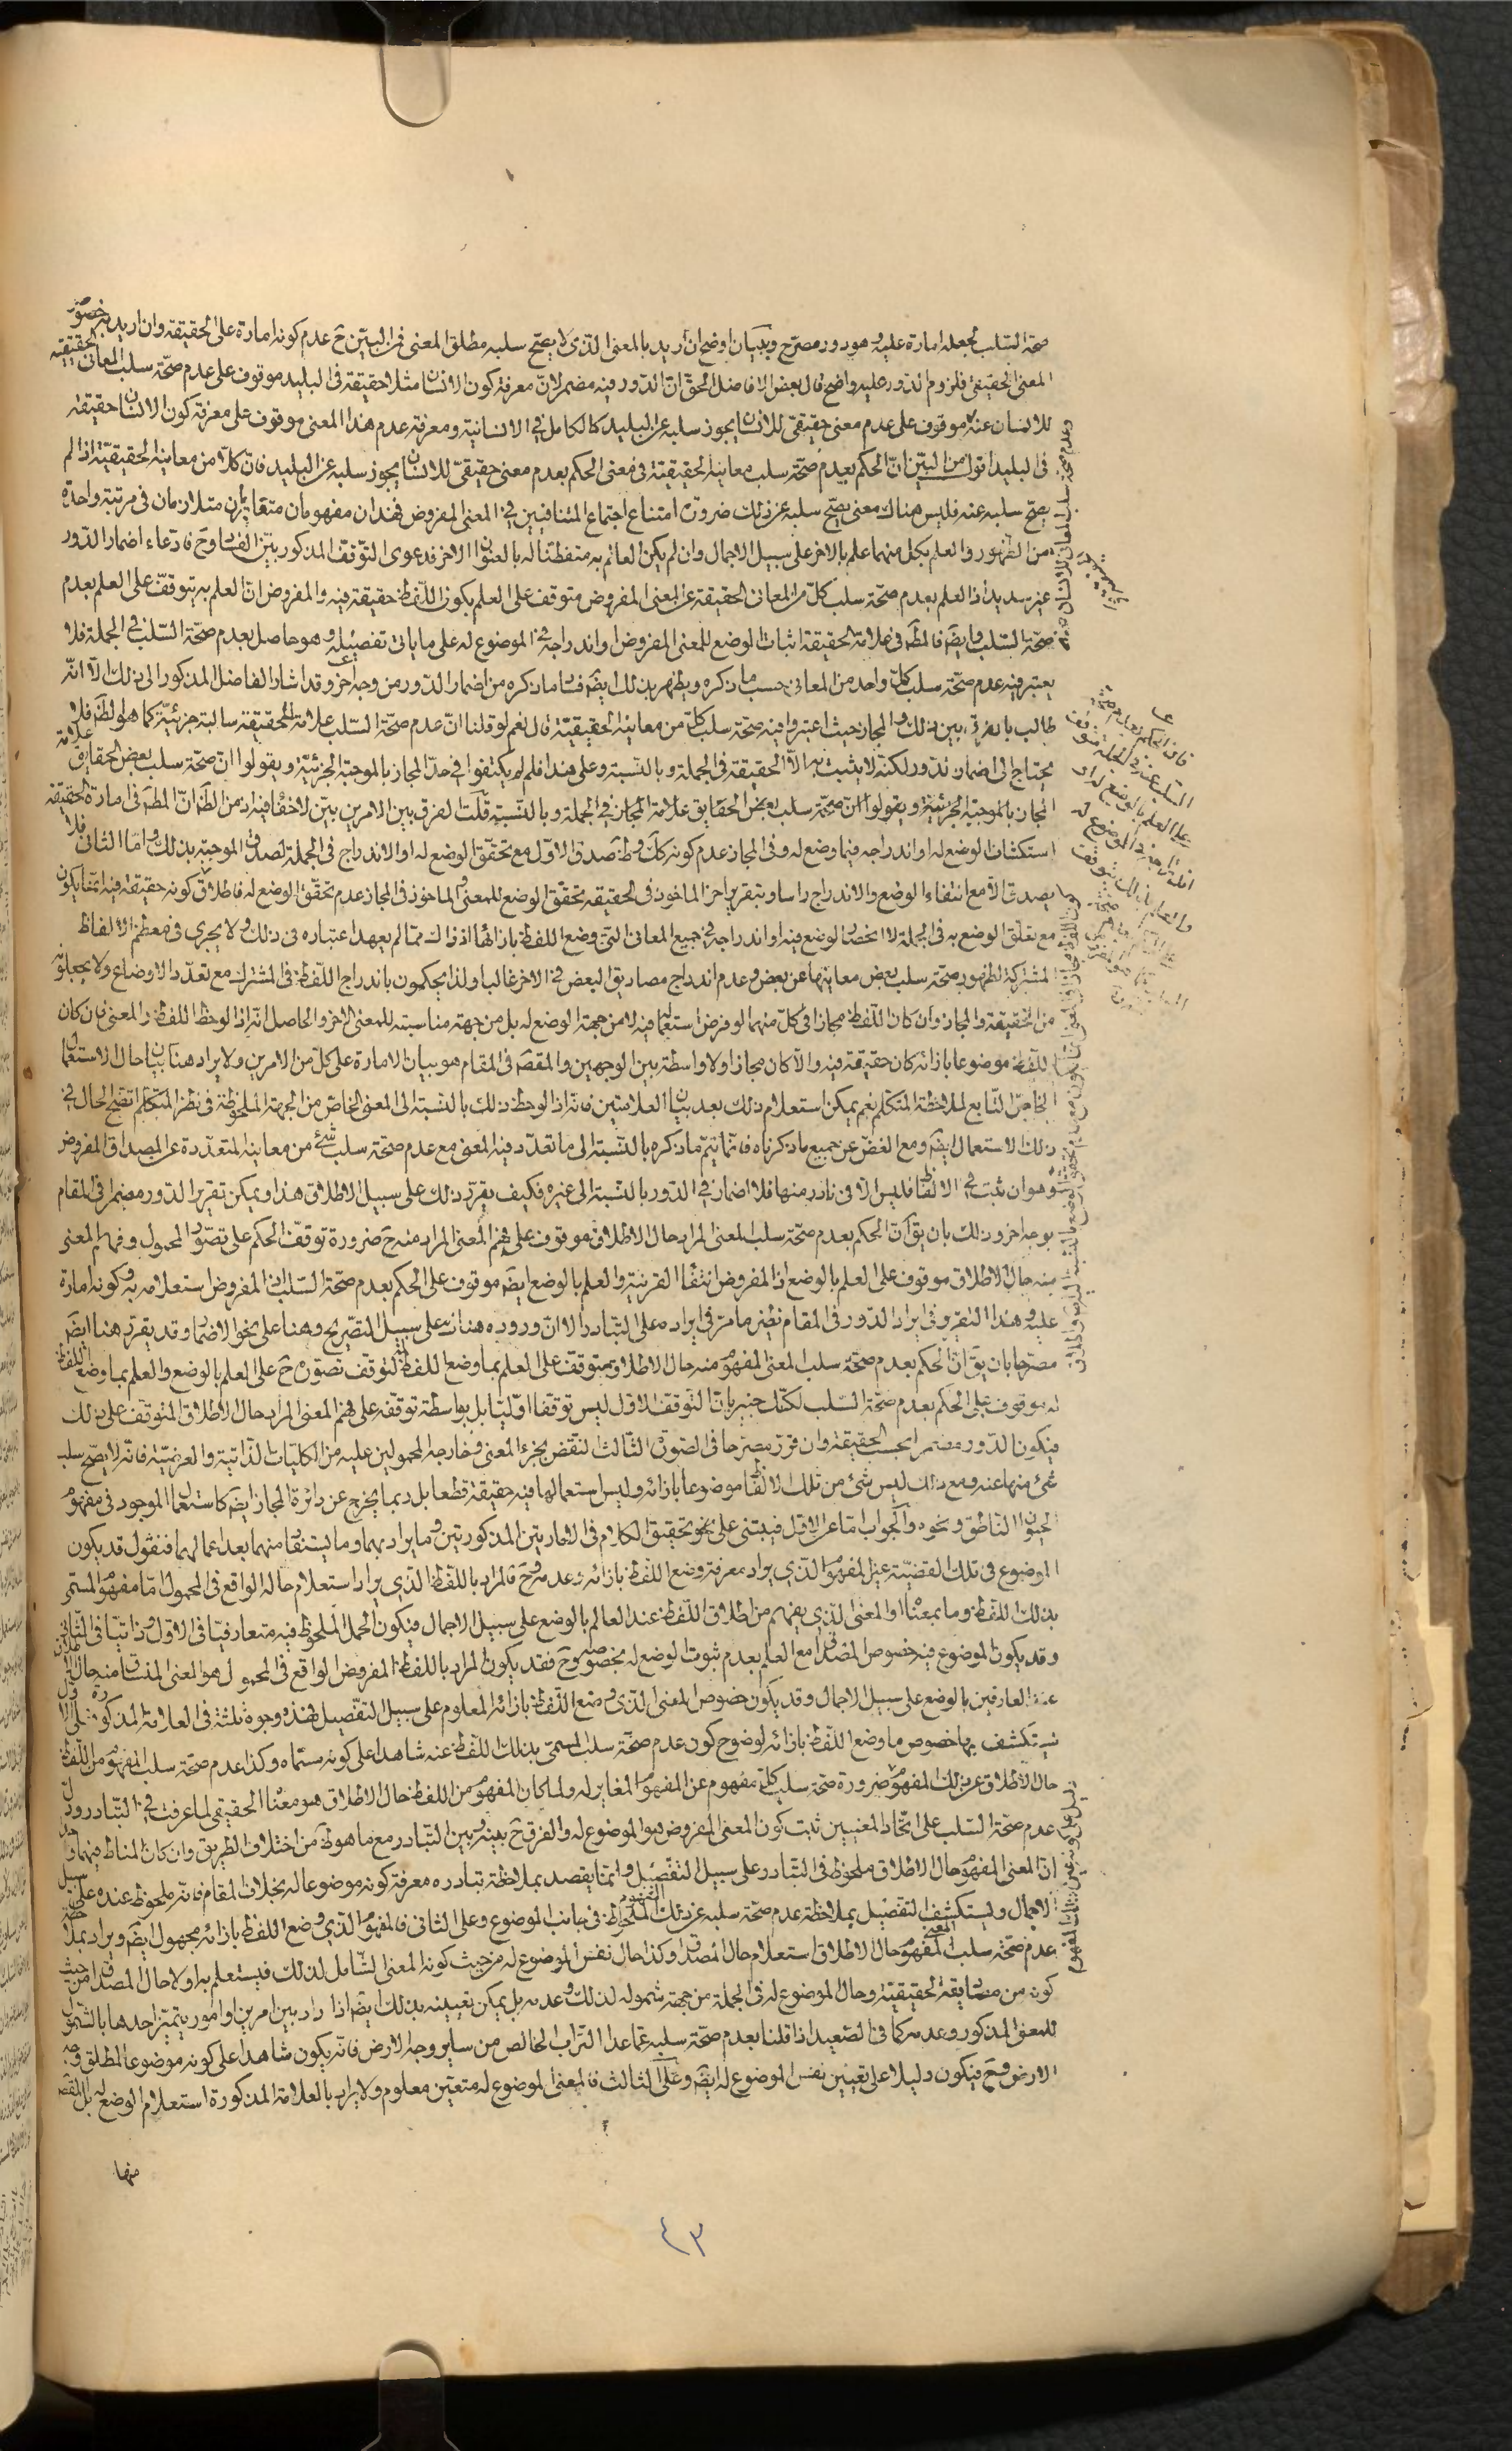 صحة السّلب لجعله امارة عليه وهو دور مصرّح وببيان اوضح ان اريد بالمعنى الّذى لا يصحّ سلبه مطلق المعنى فمن البيّن ح عدم كونه امارة على الحقيقة وان اريد به خصوص
المعنى الحقيقى فلزوم الدّور عليه واضح قال بعض الافاضل الحقّ انّ الدّور فيه مضمر لانّ معرفة كون الانسان مثلا حقيقة فى البليد موقوف على عدم صحّة سلب المعانى الحقيقيّة
للانسان عنه موقوف على عدم معنى حقيقىّ للانسان يجوز سلبه عن البليد كالكامل فى الانسانية ومعرفة عدم هذا المعنى موقوف على معرفة كون الانسان حقيقة
فى البليد اقول من البيّن انّ الحكم بعدم صحّة سلب معانيه الحقيقيّة فى معنى الحكم بعدم معنى حقيقىّ للانسان يجوز سلبه عن البليد فانّ كلّا من معانيه الحقيقيّة اذا لم
يصحّ سلبه عنه فليس هناك معنى يصحّ سلبه عن ذلك ضرورة امتناع اجتماع المتنافيين فى المعنى المفروض فهذان مفهومان متغايران متلازمان فى مرتبة واحدة
من الظّهور والعلم بكل منهما علم بالاخر على سبيل الاجمال وان لم يكن العالم به متفطّنا له بالعنوان الاخر فدعوى التّوقّف المذكور بيّن الفساد وح فادّعاء اضمار الدّور
غير سديد اذ العلم بعدم صحّة سلب كلّ من المعانى الحقيقة عن المعنى المفروض متوقف على العلم بكون اللّفظ حقيقة فيه والمفروض انّ العلم به يتوقّف على العلم بعدم
صحّة السّلب وايضَ فالمقصَ فى علامة الحقيقة اثبات الوضع للمعنى المفروض او اندراجه فى الموضوع له على ما ياتى تفصيله وهو حاصل بعدم صحّة السّلب فى الجملة فلا
يعتبر فيه عدم صحّة سلب كلّ واحد من المعانى حسب ما ذكره ويظهر بذلك ايضَ فساد ما ذكره من اضمار الدّور من وجه اخر وقد اشار الفاضل المذكور الى ذلك الّا انّه
طالب بالفرق بين ذلك والمجاز حيث اعتبروا فيه صحّة سلب كلّ من معانيه الحقيقيّة قال نعم لو قلنا انّ عدم صحّة السّلب علامة الحقيقة سالبة جزئيّة كما هو الظَ فلا
يحتاج الى اضمار الدّور لكنّه لا يثبت به الّا الحقيقة فى الجملة وبالنّسبة وعلى هذا فلم لم يكتفوا فى حدّ المجاز بالموجبة الجزئيّة ويقولوا انّ صحّة سلب بعض الحقايق علامة
المجاز بالموجبة الجزئيّة ويقولوا انّ صحّة سلب بعض الحقايق علامة المجاز فى الجملة وبالنّسبة قلت الفرق بين الامرين بيّن لا خفاء فيه اذ من الظَ انّ المقصَ فى امارة الحقيقة
استكشاف الوضع له او اندراجه فيما وضع له وفى المجاز عدم كونه كك وظَ صدق الاوّل مع تحقّق الوضع له او الاندراج فى الجملة لصدق الموجبة بذلك وامّا الثانى فلا
يصدق الّا مع انتفاء الوضع والاندراج راسا وبتقرير اخر الماخوذ فى الحقيقة تحقّق الوضع للمعنى والماخوذ فى المجاز عدم تحقّق الوضع له فاطلاق كونه حقيقة فيه انّما يكون
مع تعلّق الوضع به فى الجملة لا انحصار الوضع فيه او اندراجه فى جميع المعانى الّتى وضع اللّفظ بازائها اذ ذاك ممّا لم يعهد اعتباره فى ذلك ولا يجرى فى معظم الالفاظ
المشتركة لظهور صحّة سلب بعض معانيها عن بعض وعدم اندراج مصاديق البعض فى الاخر غالبا ولذا يحكمون باندراج اللّفظ فى المشترك مع تعدّد الاوضاع ولا يجعلونه
من الحقيقة والمجاز وان كان اللّفظ مجازا فى كلّ منهما لو فرض استعماله فيه لا من جهة الوضع له بل من جهة مناسبته للمعنى الاخر والحاصل انّه اذا لوحظ اللفظ والمعنى فان كان
اللّفظ موضوعا بازائه كان حقيقة فيه والّا كان مجازا ولا واسطة بين الوجهين والمقصَ فى المقام هو بيان الامارة على كلّ من الامرين ولا يراد هنا بيان حال الاستعمال
الخاصّ التابع لملاحظة المتكلّم نعم يمكن استعلام ذلك بعد بيان العلامتين فانّه اذا لوحظ ذلك بالنّسبة الى المعنى الخاصّ من الجهة الملحوظة فى نظر المتكلّم اتّضح الحال فى
ذلك الاستعمال ايضَ ومع الغضّ عن جميع ما ذكرناه فانّما يتمّ ما ذكره بالنّسبة الى ما تعدّد فيه المعنى مع عدم صحّة سلب شئ من معانيه المتعدّدة عن المصداق المفروض
وهو ان ثبت فى الالفاظ فليس الّا فى نادر منها فلا اضمار فى الدّور بالنّسبة الى غيره فكيف يقرّر ذلك على سبيل الاطلاق هذا ويمكن تقرير الدّور مضمرا فى المقام
بوجه اخر وذلك بان يقَ انّ الحكم بعدم صحّة سلب المعنى المراد حال الاطلاق موقوف على فهم المعنى المراد منه ح ضرورة توقّف الحكم على تصوّر المحمول وفهم المعنى
منه حال الاطلاق موقوف على العلم بالوضع اذ المفروض انتفاء القرينة والعلم بالوضع ايضَ موقوف على الحكم بعدم صحّة السّلب اذ المفروض استعلامه به وكونه امارة
عليه وهذا التقرير فى ايراد الدّور فى المقام نظير ما مرّ فى ايراده على التّبادر الا انّ وروده هناك على سبيل التّصريح وهنا على نحو الاضمار وقد يقرّر هنا ايضَ
مصرّحا بان يقَ انّ الحكم بعدم صحّة سلب المعنى المفهوم منه حال الاطلاق متوقّف على العلم بما وضع اللفظ له لتوقّف تصوّره ح على العلم بالوضع والعلم بما وضع اللّفظ
له موقوف على الحكم بعدم صحّة السّلب لكنّك خبير بانّ التّوقّف الاوّل ليس توقّفا اوّليّا بل بواسطة توقّفه على فهم المعنى المراد حال الاطلاق المتوقف على ذلك
فيكون الدّور مضمرا بحسب الحقيقة وان قرّر مصرّحا فى الصّورة الثّالث النّقض بجزء المعنى وخارجه المحمولين عليه من الكليّات الذّاتيّة والعرضيّة فانّه لا يصحّ سلب
شئ منها عنه ومع ذلك ليس شئ من تلك الالفاظ موضوعا بازائه وليس استعمالها فيه حقيقة قطعا بل ربما يخرج عن دائرة المجاز ايضَ كاستعمال الموجود فى مفهوم
الحيوان النّاطق ونحوه والجواب امّا عن الاوّل فيبتنى على نحو تحقيق الكلام فى الامارتين المذكورتين وما يراد بهما وما يستفاد منهما بعد اعمالهما فنقول قد يكون
الموضوع فى تلك القضيّة عين المفهوم الّذى يراد معرفة وضع اللّفظ بازائه وعدمه وح فالمراد باللّفظ الّذى يراد استعلام حاله الواقع فى المحمول امّا مفهوم المسمّى
بذلك اللّفظ وما بمعناه او المعنى الّذى يفهم من اطلاق اللّفظ عند العالم بالوضع على سبيل الاجمال فيكون الحمل الملحوظ فيه متعارفيّا فى الاوّل وذاتيّا فى الثّانى
وقد يكون الموضوع فيه خصوص المصداق مع العلم بعدم ثبوت الوضع له بخصوصه وح فقد يكون المراد باللّفظ المفروض الواقع فى المحمول هو المعنى المنساق منه حال الاطلاق
عند العارفين بالوضع على سبيل الاجمال وقد يكون خصوص المعنى الّذى وضع اللّفظ بازائه المعلوم على سبيل التّفصيل فهذه وجوه ثلثة فى العلامة المذكورة فعلى الاوّل
يستكشف بها خصوص ما وضع اللّفظ بازائه لوضوح كون عدم صحّة سلب المسمّى بذلك اللّفظ عنه شاهدا على كونه مسمّاه وكذا عدم صحّة سلب المفهوم من اللّفظ
حال الاطلاق عن ذلك المفهوم ضرورة صحّة سلب كلّ مفهوم عن المفهوم المغاير له ولمّا كان المفهوم من اللفظ حال الاطلاق هو معناه الحقيقى لما عرفت فى التّبادر ودلّ
عدم صحّة السّلب على اتّحاد المعنيين ثبت كون المعنى المفروض هو الموضوع له والفرق ح بينه وبين التّبادر مع ما هو ظَ من اختلاف الطريق وان كان المناط فيهما واحدا
انّ المعنى المفهوم حال الاطلاق ملحوظ فى التّبادر على سبيل التّفصيل وانّما يقصد بملاحظة تبادره معرفة كونه موضوعا له بخلاف المقام فانّه ملحوظ عنده على سبيل
الاجمال ويستكشف التّفصيل بملاحظة عدم صحّة سلبه عن ذلك المفهوم الملحوظ فى جانب الموضوع وعلى الثانى فالمفهوم الّذى وضع اللّفظ بازائه مجهول ايضَ ويراد بملاحظة
عدم صحّة سلب المعنى المفهوم حال الاطلاق استعلام حال المصداق وكذا حال نفس الموضوع له من حيث كونه المعنى الشّامل لذلك فيستعلم به اولا حال المصداق من حيث
كونه من مصاديقه الحقيقيّة وحال الموضوع له فى الجملة من جهة شموله لذلك وعدمه بل يمكن تعيينه بذلك ايضَ اذا دار بين امرين او امور يتميّز احدها بالشّمول
للمعنى المذكور وعدمه كما فى الصّعيد اذا قلنا بعدم صحّة سلبه عمّا عدا التراب الخالص من ساير وجه الارض فانّه يكون شاهدا على كونه موضوعا لمطلق وجه
الارض وح فيكون دليلا على تعيين نفس الموضوع له ايضَ وعلى الثالث فالمعنى الموضوع له متعيّن معلوم ولا يراد بالعلامة المذكورة استعلام الوضع له بل المقصَ
منها
٤٣